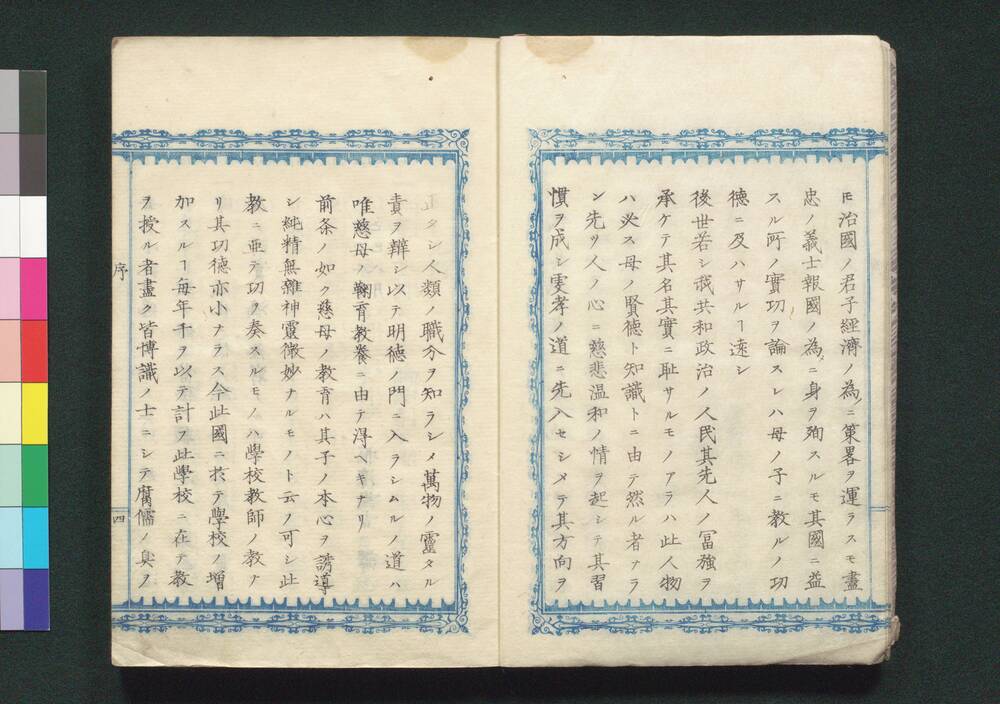 𪜈治國ノ君子經濟ノ為ニ策畧ヲ運ラスモ盡
忠ノ義士報國ノ為ニ身ヲ殉スルモ其國ニ益
スル所ノ實功ヲ論スレハ母ノ子ニ教ルノ功
德ニ及ハサルヿ遠シ
後世若シ我共和政治ノ人民其先人ノ冨強ヲ
承ケテ其名其實ニ耻サルモノアラハ此人物
ハ必ス母ノ賢德ト知識トニ由テ然ル者ナラ
ン先ツ人ノ心ニ慈悲温和ノ情ヲ起シテ其習
慣ヲ成シ孝ノ道ニ先入セシメテ其方向ヲ
正クシ人類ノ職分ヲ知ラシメ萬物ノ靈タル
責ヲ辯シ以テ明德ノ門ニ入ラシムルノ道ハ
唯慈母ノ鞠育教養ニ由テ淂ヘキナリ
前条ノ如ク慈母ノ教育ハ其子ノ本心ヲ誘導
シ純精無雜神靈微妙ナルモノト云ノ可シ此
教ニ亜テ功ヲ奏スルモノハ學校教師ノ教ナ
リ其功德亦小ナラス今此國ニ扵テ學校ノ増
加スルヿ毎年千ヲ以テ計フ此學校ニ在テ教
ヲ授ル者盡ク皆博識ノ士ニシテ腐儒ノ臭ノ
序
四